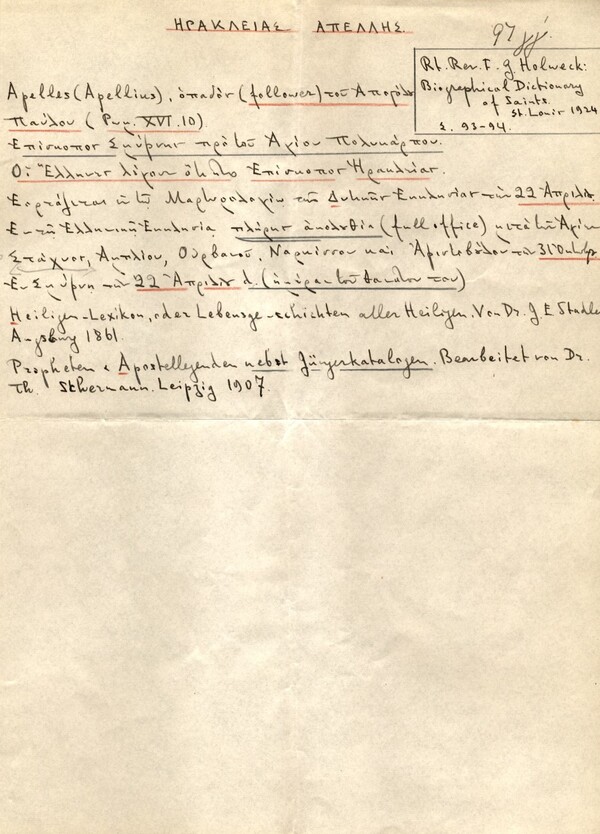 ΗΡΑΚΛΕΙΑΣ ΑΠΕΛΛΗΣ.
97
Rt. Rev. F. G Holweck:
Biographical Dictionary
of Saints.
St. Louis 1924
Σ. 93-94.
Apelles (Apellius), ὀπαδὸς (follower) τοῦ Ἀποστόλου
Παύλου (Ρωμ. XVI. 10)
Ἐπίσκοπος Σμύρνης πρὸ τοῦ Ἁγίου Πολυκάρπου.
Οἱ Ἕλληνες λέγουν ὅτι Ἐπίσκοπος Ἡρακλείας.
Ἑορτάζεται ἐν τῷ Μαρτυρολογίῳ τῆς Δυτικῆς Ἐκκλησίας τὴν 22 Ἀπριλίου
Ἐν τῇ Ἑλληνικῇ Ἐκκλησίᾳ πλήρης ἀκολουθία (full office) μετὰ τῶν Ἁγίων
Στάχυος, Ἀμπλίου, Οὐρβανοῦ, Ναρκίσσου καὶ Ἀριστοβούλου τὴν 31 Ὀκτωβρ
Ἐν Σμύρνῃ τὴν 22 Ἀπριλίου (ἡμέρας τοῦ θανάτου του)
Heiligen-Lexikon, oder Lebensgeschichten aller Heiligen. Von Dr. J. E Stadle
Augsburg 1861.
Propheten & Apostellegenden nebst Jüngerkatalogen. Bearbeitet von Dr.
Th. Schermann. Leipzig 1907.